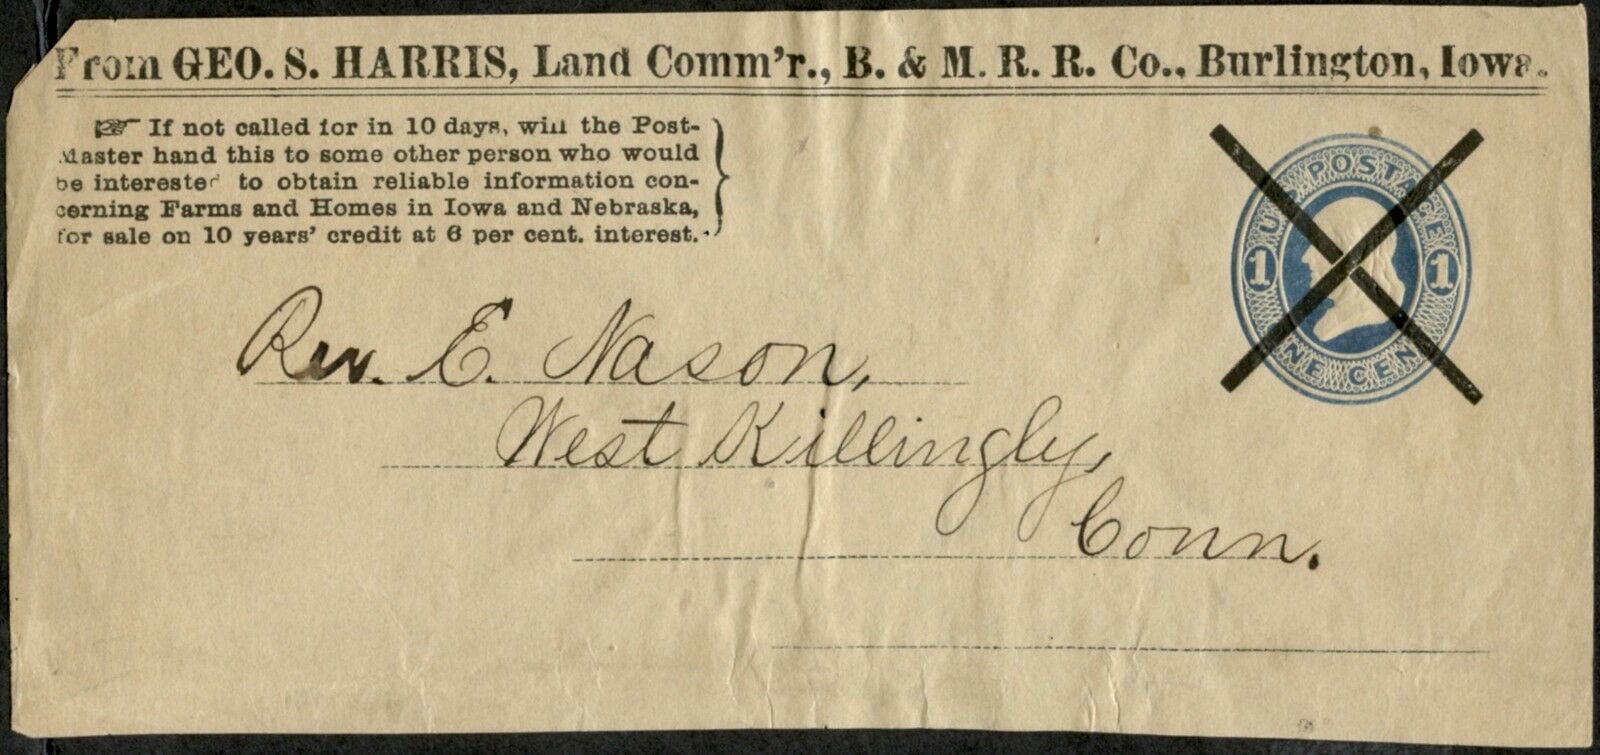 From GEO. S. HARRIS, Land Comm'r., B. & M. R. R. Co., Burlington, Iowa.
☞ If not called for in 10 days, will the Post-
Master hand this to some other person who would
be interested to obtain reliable information con-
cerning Farms and Homes in Iowa and Nebraska,
for sale on 10 years' credit at 6 per cent. interest.
U.S. POSTAGE
1 1
ONE CENT
Rev. E. Nason,
West Killingly,
Conn.